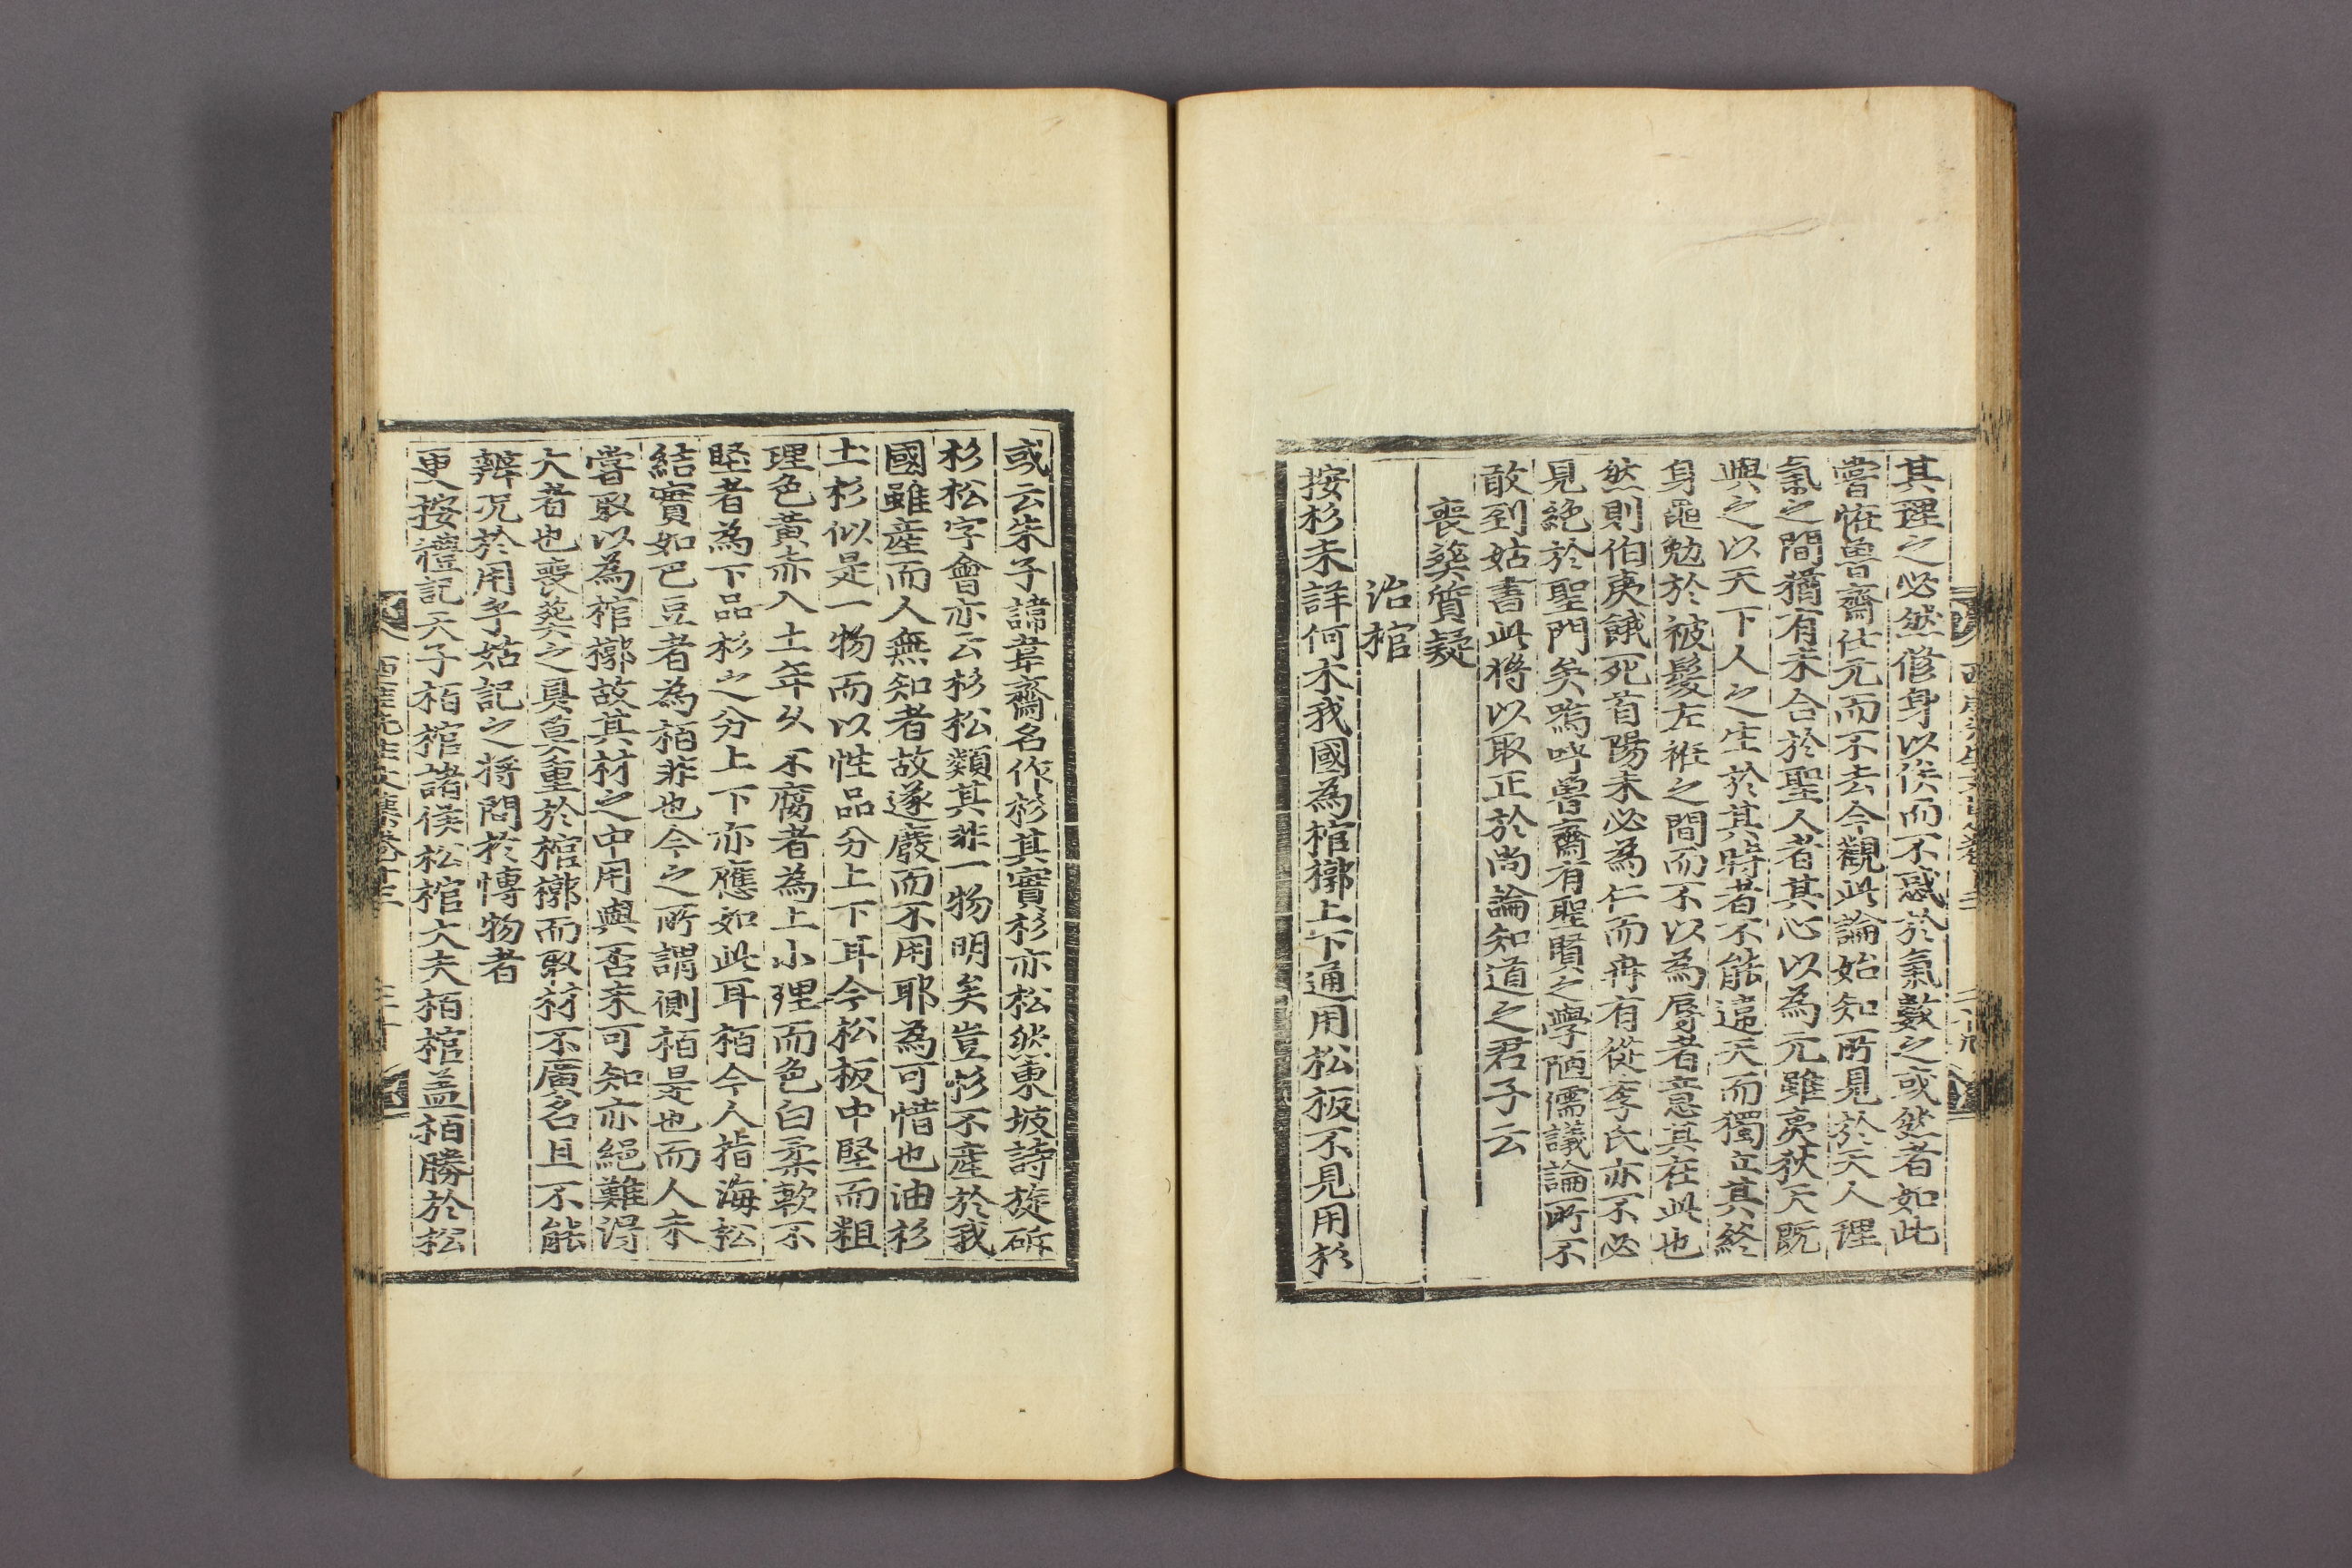 其理之必然修身以俟而不惑於氣數之或然者如此
嘗恠魯齋仕元而不去今觀此論始知所見於天人理
氣之間猶有未合於聖人者其心以為元雖夷狄天既
與之以天下人之生於其時者不能違天而獨立其終
身黽勉於被髮左袵之間而不以為辱者意其在此也
然則伯夷餓死首陽未必為仁而冉有從季氏亦不必
見絶於聖門矣嗚呼魯齋有聖賢之學陋儒議論所不
敢到姑書此將以取正於尚論知道之君子云
喪葬質疑
治棺
按杉未詳何木我國為棺槨上下通用松板不見用杉
或云朱子諱韋齋名作杉其實杉亦松然東坡詩旋斫
杉松字會亦云杉松類其非一物明矣豈杉不產於我
國雖産而人無知者故遂廢而不用耶為可惜也油杉
土杉似是一物而以性品分上下耳今松板中堅而粗
理色黃赤入土年久不腐者為上小理而色白柔軟不
堅者為下品杉之分上下亦應如此耳栢今人指海松
結實如巴豆者為栢非也今之所謂側栢是也而人未
嘗取以為棺槨故其材之中用與否未可知亦絕難得
大者也喪葬之具莫重於棺槨而取材不廣名且不能
辨况於用乎姑記之將問於博物者
更按禮記天子栢棺諸侯松棺大夫栢棺盖栢勝於松